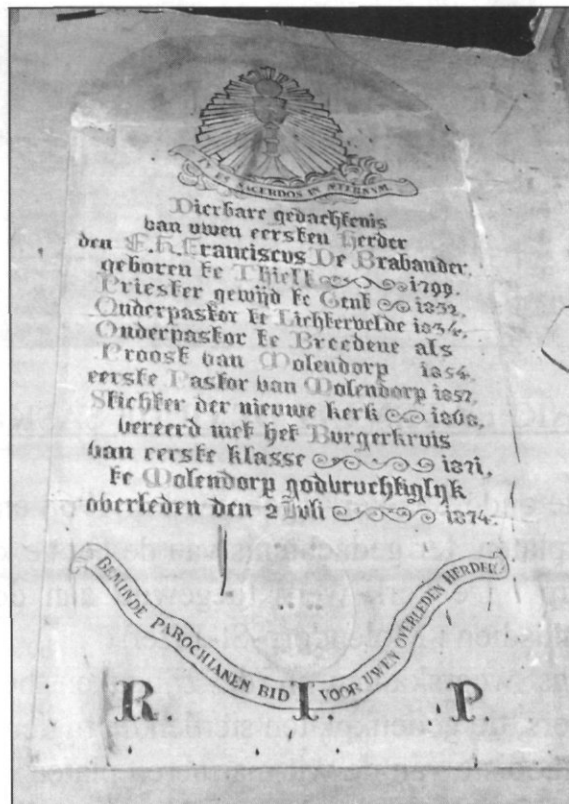 TV ES SACERDOS IN ÆTERNVM.
Dierbare gedachtenis
van uwen eersten Herder
den E.H. Franciscvs De Brabander.
geboren te Thielt 1799.
Priester gewijd te Gent 1832.
Onderpastor te Lichtervelde 1834.
Onderpastor te Breedene als
Proost van Molendorp 1854.
eerste Pastor van Molendorp 1857.
Stichter der nieuwe kerk 1868.
vereerd met het Burgerkruis
van eerste klasse 1871.
te Molendorp godvruchtiglyk
overleden den 2 Juli 1874.
BEMINDE PAROCHIANEN BID VOOR UWEN OVERLEDEN HERDER
R. I. P.